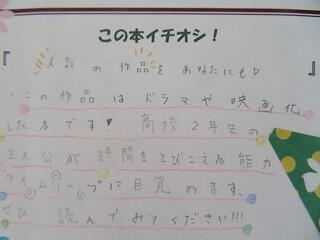 この本イチオシ！
『人気の作品をあなたにも♡
・この作品はドラマや映画化
した本です！♥高校２年生の
主人公が時間をとびこえる能力
タイムリープに目覚めます。
ぜひ読んでみてください!!!